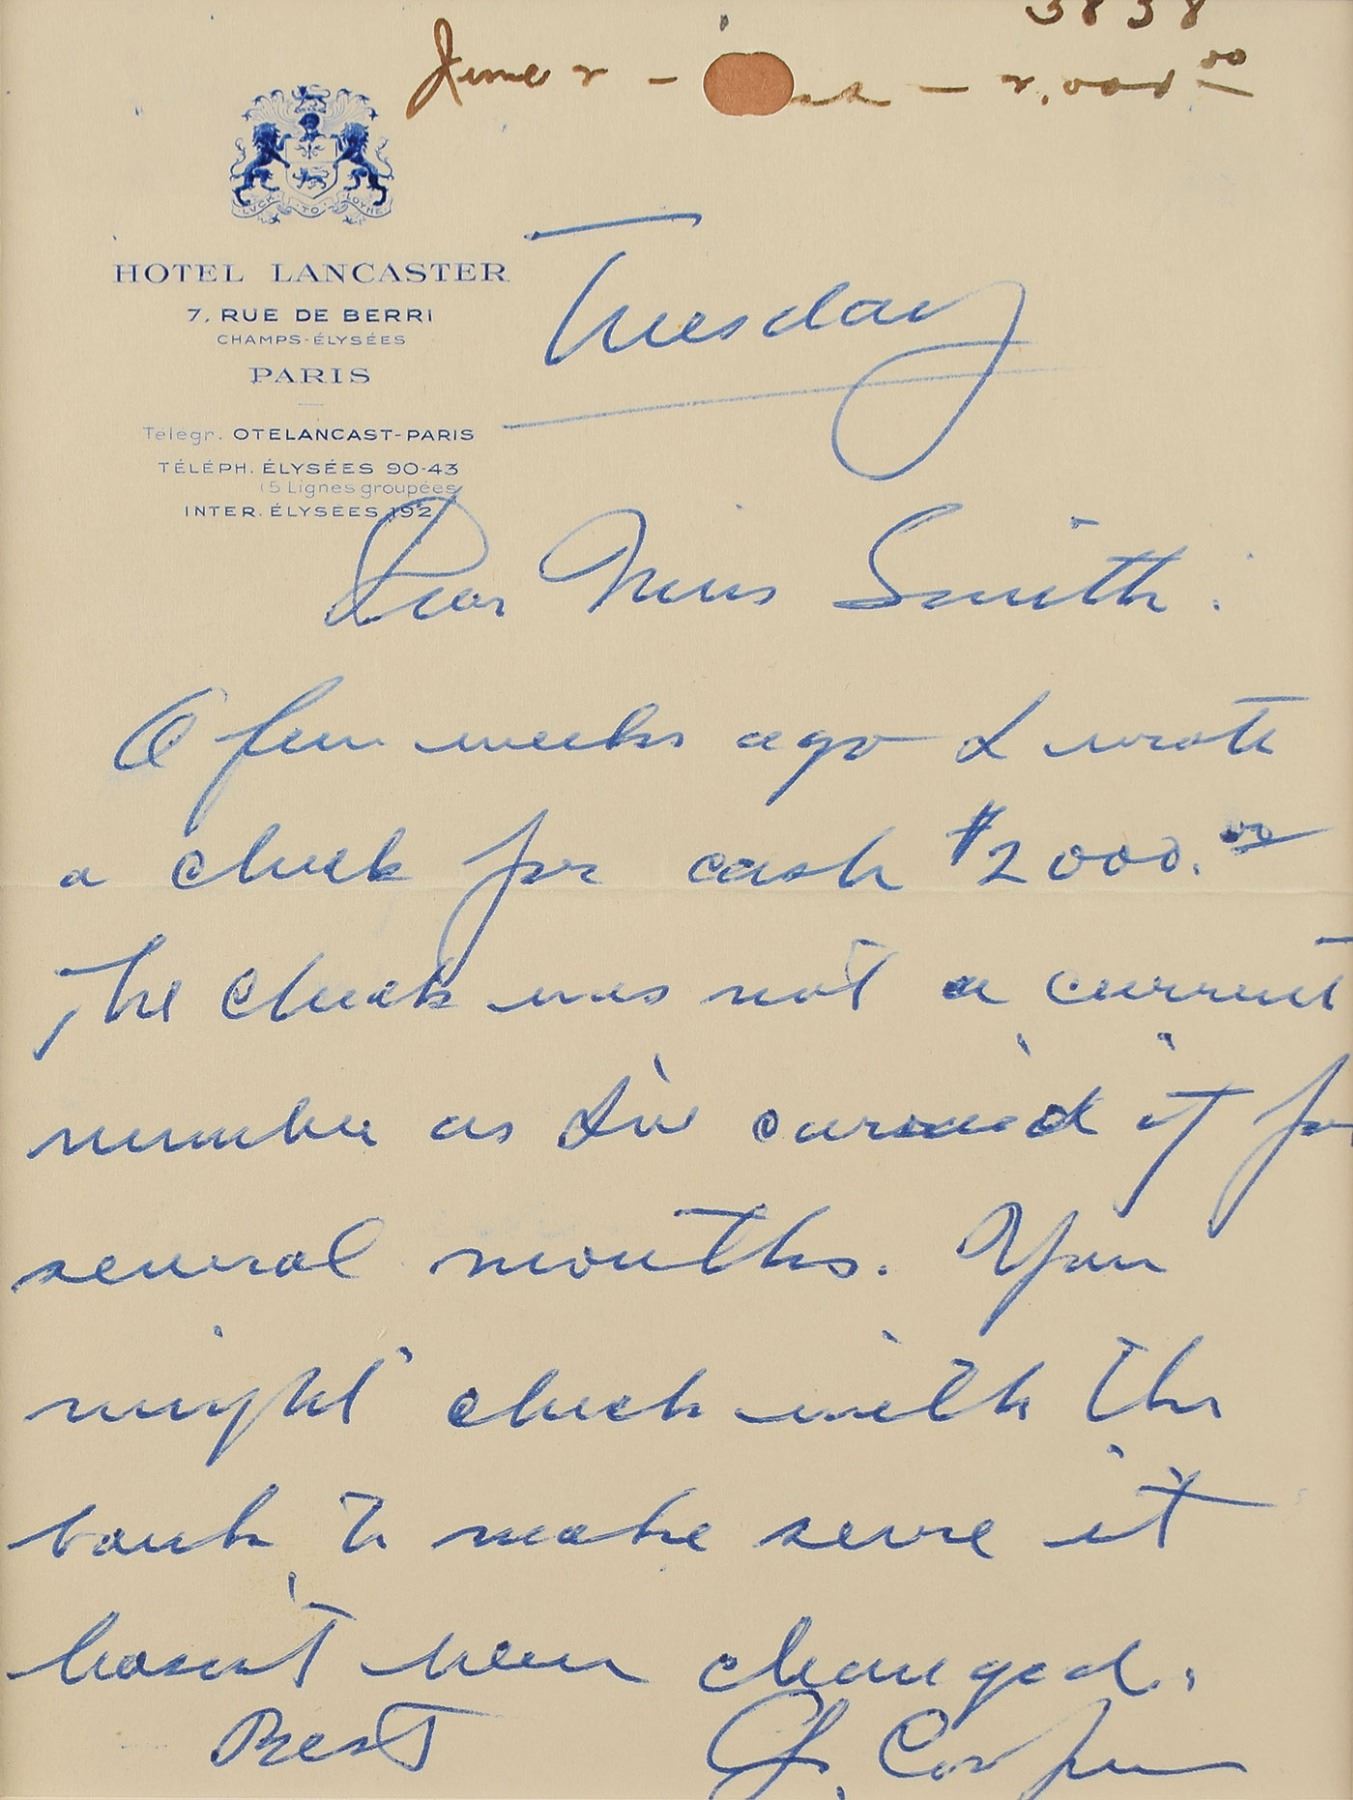 3838
June 2 - - 2,000 00
LUCK TO LOYNE
HOTEL LANCASTER
7, RUE DE BERRI
CHAMPS-ÉLYSÉES
PARIS
Télégr. OTELANCAST-PARIS
TÉLÉPH. ÉLYSÉES 90-43
(5 Lignes groupées
INTER. ÉLYSÉES 192
Tuesday
Dear Miss Smith:
A few weeks ago I wrote
a check for cash $2000.00
The check was not a current
number as I'v carried it for
several months. You
might check with the
bank to make sure it
hasn't been changed.
Best G. Cooper